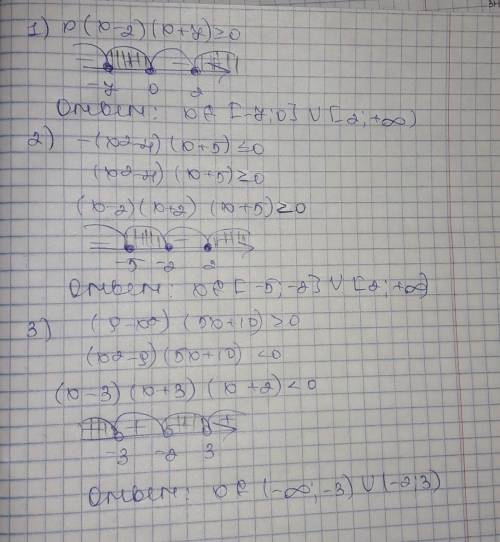 1) x (x-2) (x+7) ≥ 0
- - +
-7 0 2
Ответ: x ∈ [-7; 0] ∪ [2; +∞)
2) -(x2-4) (x+5) ≤ 0
(x2-4) (x+5) ≥ 0
(x-2) (x+2) (x+5) ≥ 0
- -
-5 -2 2
Ответ: x ∈ [-5; -2] ∪ [2; +∞)
3) (9-x2) (5x+10) > 0
(x2-9) (5x+10) < 0
(x-3) (x+3) (x+2) < 0
+ +
-3 -2 3
Ответ: x ∈ (-∞; -3) ∪ (-2; 3)